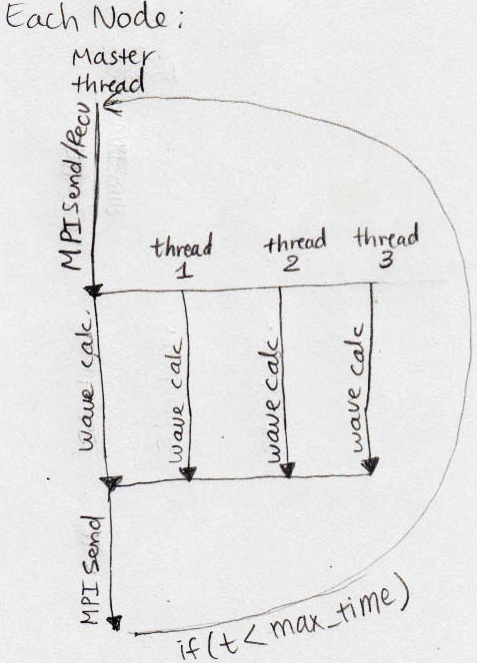 Each Node:
Master
thread
MPI Send/Recv
thread
1
thread
2
thread
3
wave calc.
wave calc
wave calc
wave calc
MPI Send
if(t< max_time)